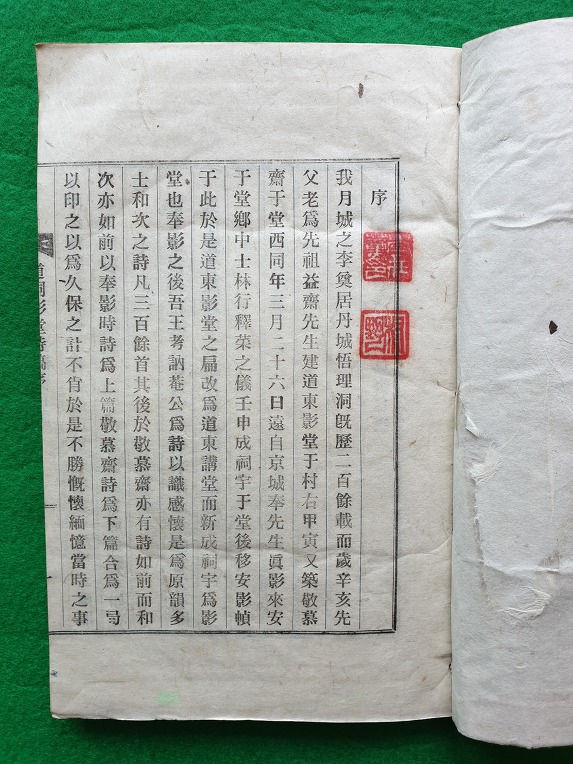 序
我月城之李奠居丹城悟理洞旣歷二百餘載而歲辛亥先
父老爲先祖益齋先生建道東影堂于村右甲寅又築敬慕
齋于堂西同年三月二十六日遠自京城奉先生眞影來安
于堂鄕中士林行釋菜之儀壬申成祠宇于堂後移安影幀
于此於是道東影堂之扁改爲道東講堂而新成祠宇爲影
堂也奉影之後吾王考訥菴公爲詩以識感懷是爲原韻多
士和次之詩凡三百餘首其後於敬慕齋亦有詩如前而和
次亦如前以奉影時詩爲上篇敬慕齋詩爲下篇合爲一弓
以印之以爲久保之計不肯於是不勝慨懷緬憶當時之事
影堂詩